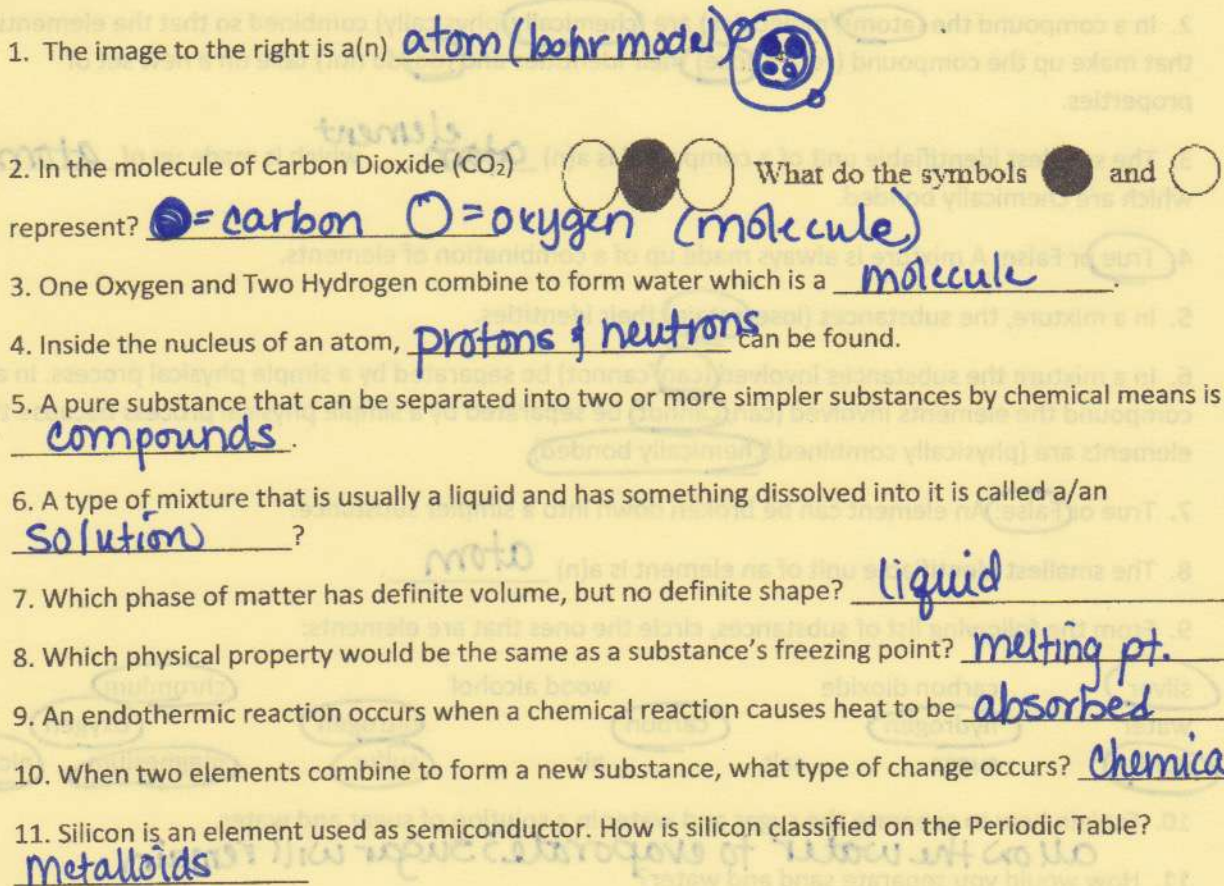 1. The image to the right is a(n) atom (bohr model)
2. In the molecule of Carbon Dioxide (CO₂) What do the symbols and
represent? = carbon = oxygen (molecule)
3. One Oxygen and Two Hydrogen combine to form water which is a molecule.
4. Inside the nucleus of an atom, protons & neutrons can be found.
5. A pure substance that can be separated into two or more simpler substances by chemical means is
compounds.
6. A type of mixture that is usually a liquid and has something dissolved into it is called a/an
solution?
7. Which phase of matter has definite volume, but no definite shape? liquid
8. Which physical property would be the same as a substance's freezing point? melting pt.
9. An endothermic reaction occurs when a chemical reaction causes heat to be absorbed
10. When two elements combine to form a new substance, what type of change occurs? Chemica
11. Silicon is an element used as semiconductor. How is silicon classified on the Periodic Table?
Metalloids